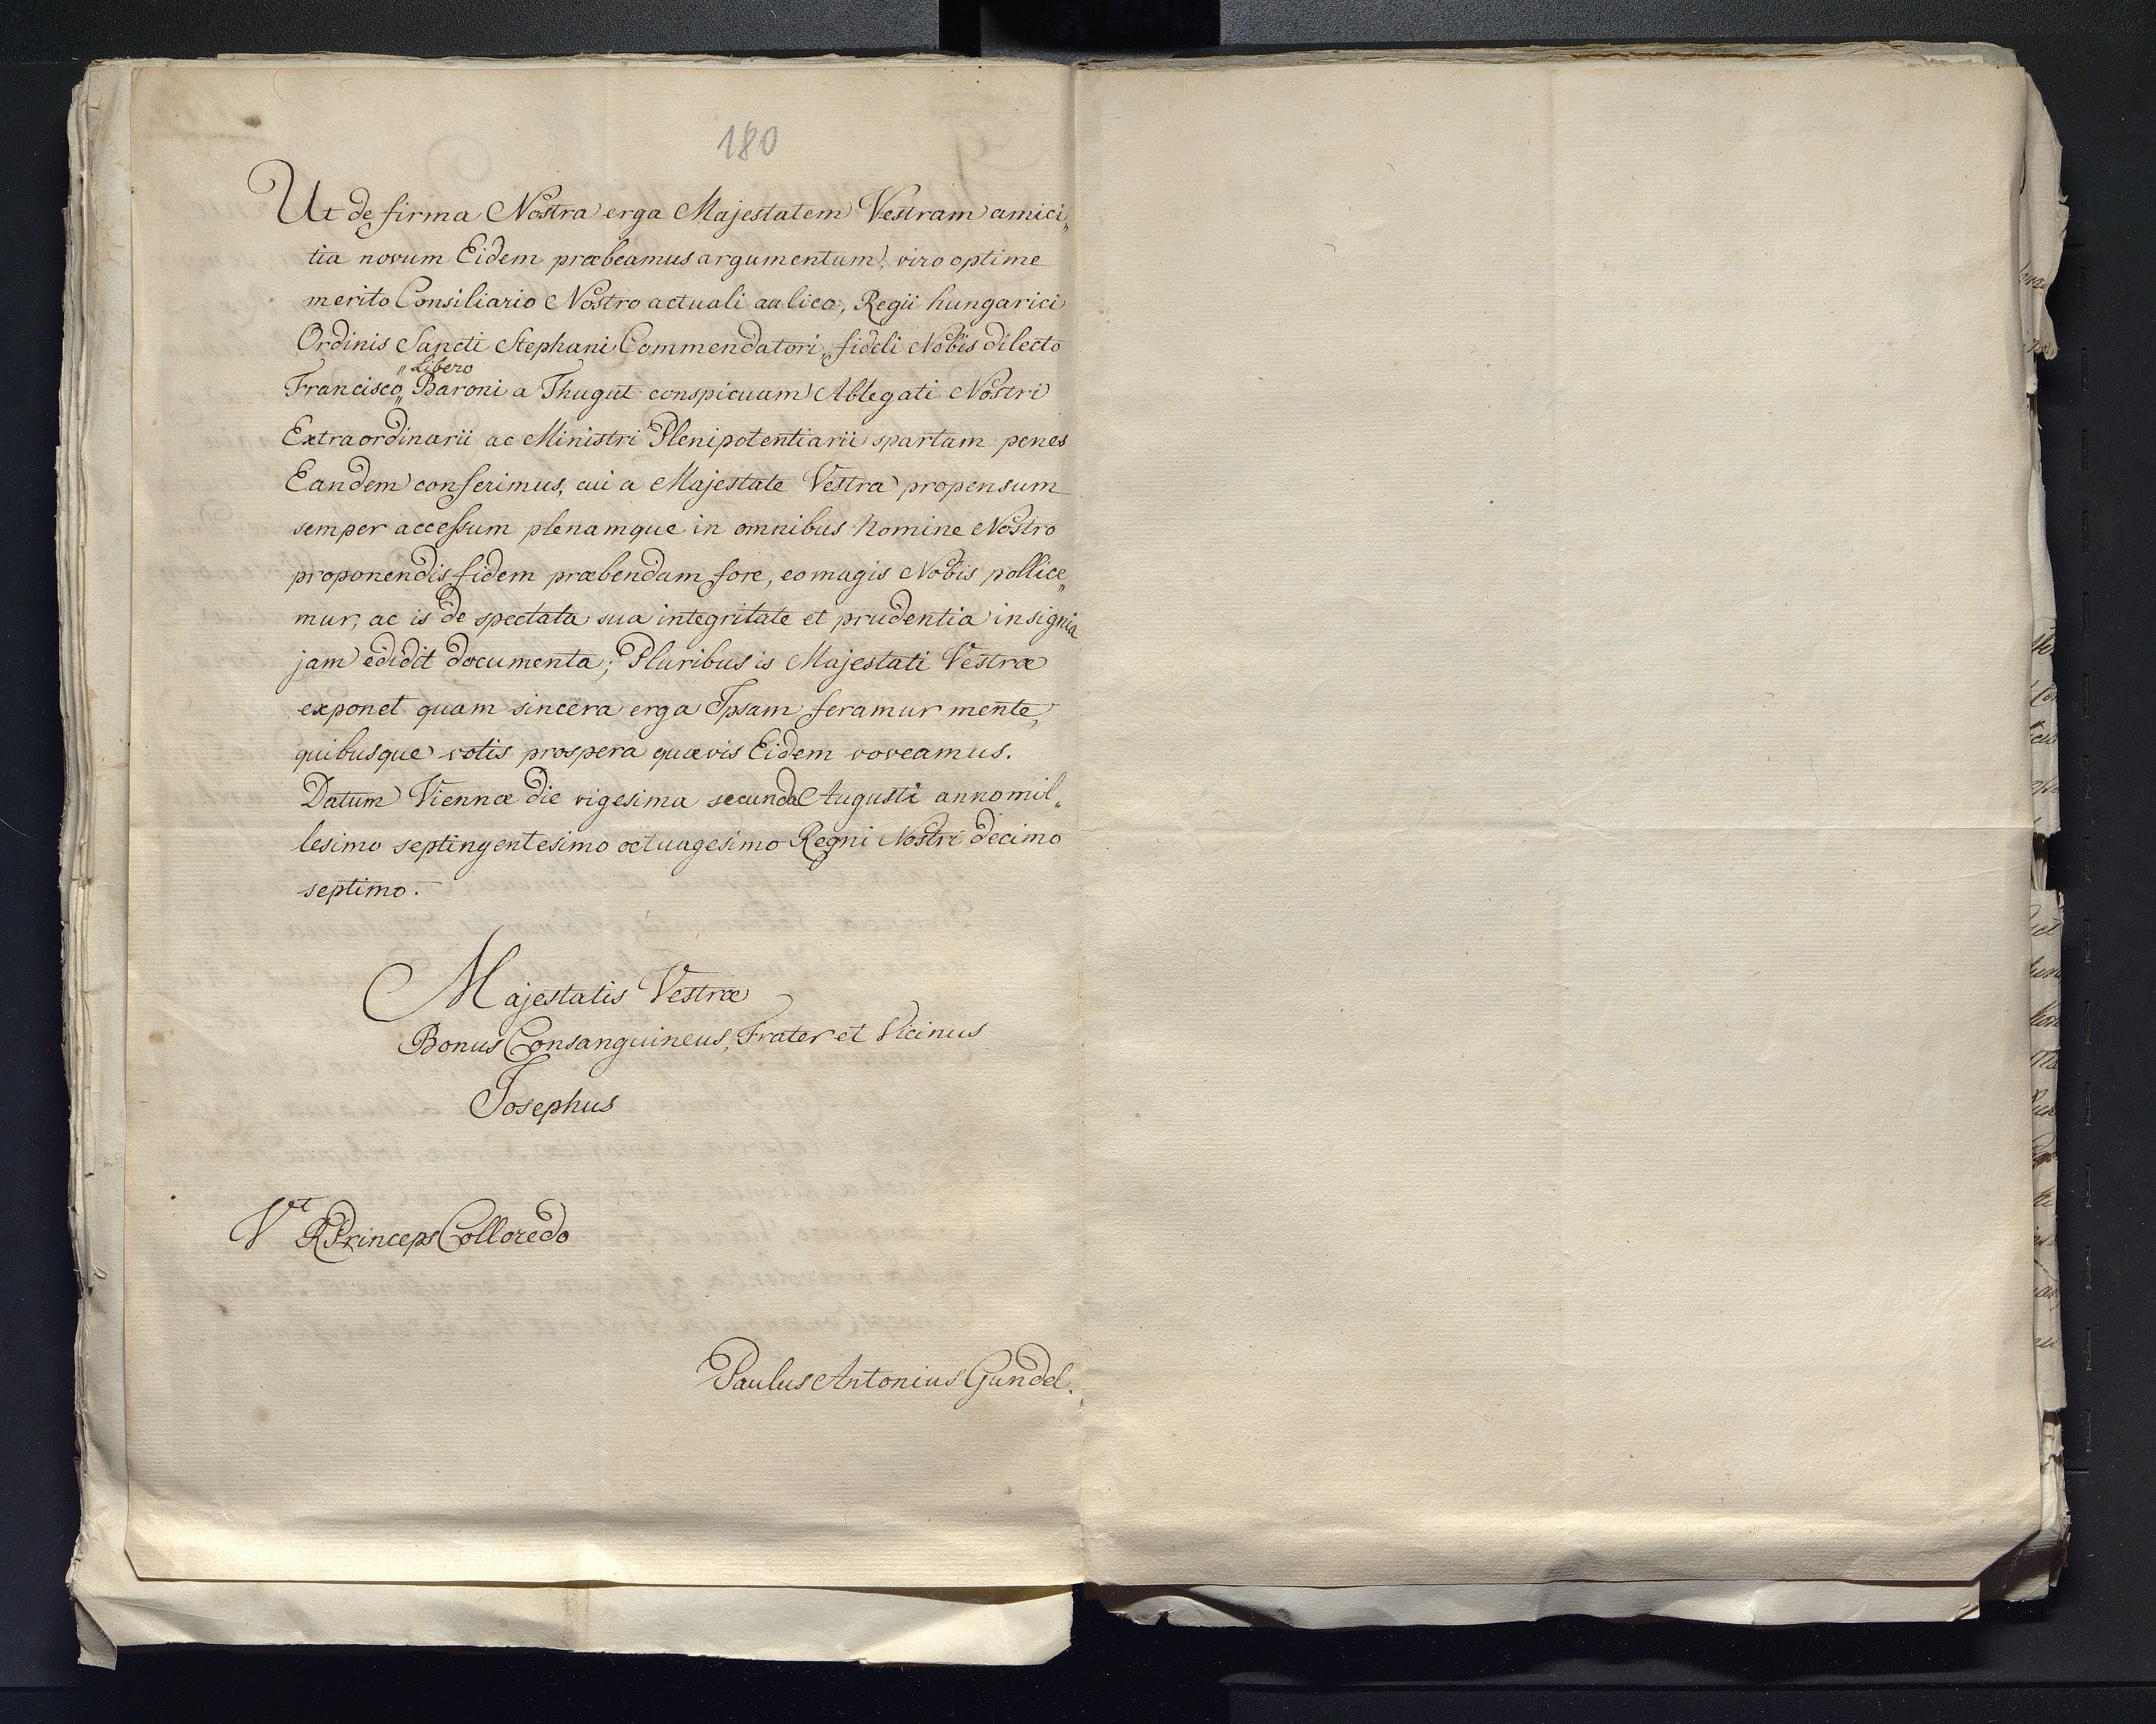 180
Ut de firma Nostra erga Majestatem Vestram amici„
tia novum Eidem præbeamus argumentum, viro optime
merito Consiliario Nostro actuali aulico, Regii hungarici
Ordinis Sancti Stephani Commendatori, fideli Nobis dilecto
„Libero
Francisco„ Baroni a Thugut conspicuam Ablegati Nostri
Extraordinarii ac Ministri Plenipotentiarii spartam penes
Eandem conferimus, cui a Majestate Vestra propensum
semper accessum plenamque in omnibus Nomine Nostro
proponendis fidem præbendam fore, eo magis Nobis pollice„
mur, ac is de spectata sua integritate et prudentia insignia
jam edidit documenta; Pluribus is Majestati Vestræ
exponet quam sincera erga Ipsam feramur mente,
quibusque votis prospera quævis Eidem voveamus.
Datum Viennæ die vigesima secunda Augusti anno mil„
lesimo septingentesimo octuagesimo Regni Nostri decimo
septimo.
Majestatis Vestræ
Bonus Consanguineus, Frater et Vicinus
Josephus
Vt R Princeps Colloredo
Paulus Antonius Gundel.